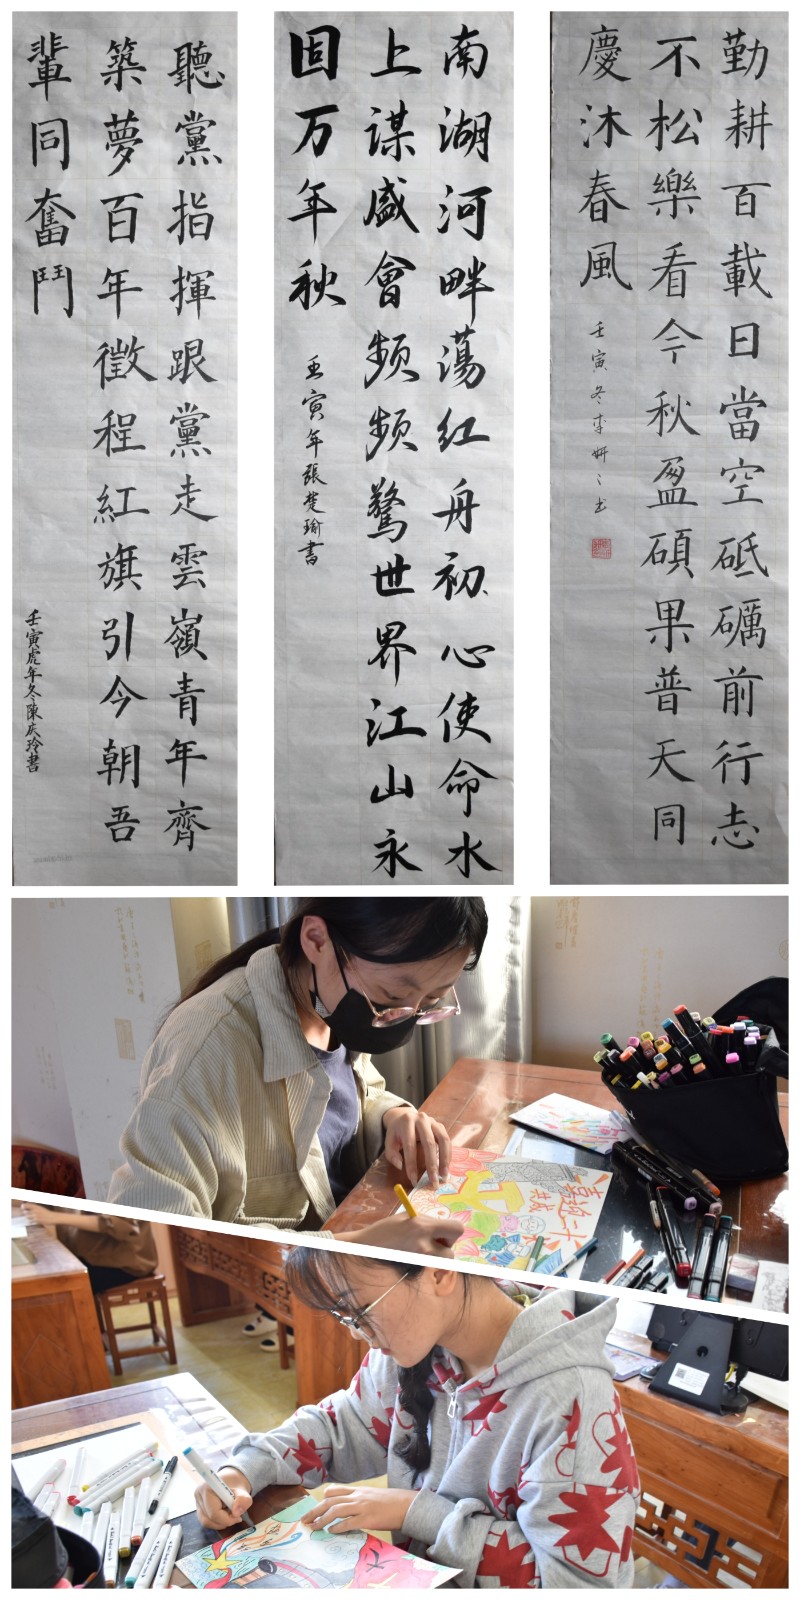 聽黨指揮跟黨走雲嶺青年齊
築夢百年徵程紅旗引今朝吾
輩同奮鬥
壬寅虎年冬陳庆玲書
南湖河畔蕩红舟初心使命水
上谋盛會频频驚世界江山永
固万年秋
壬寅年張楚瑜書
勤耕百載日當空砥礪前行志
不松樂看今秋盈碩果普天同
慶沐春風
壬寅冬李妍〻书
喜迎二十